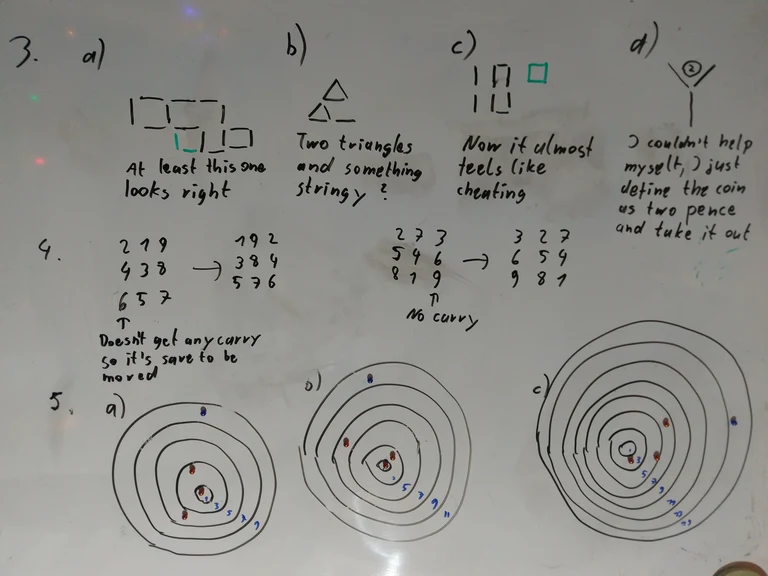 3.
a)
b)
c)
d)
2
At least this one
looks right
Two triangles
and something
stringy ?
Now it almost
feels like
cheating
I couldn't help
myself, I just
define the coin
as two pence
and take it out
4.
2 1 9
4 3 8
6 5 7
→
1 9 2
3 8 4
5 7 6
↑
Doesn't get any carry
so it's save to be
moved
2 7 3
5 4 6
8 1 9
→
3 2 7
6 5 4
9 8 1
↑
No carry
5.
a)
3 5 7 9
b)
5 7 9 11
c)
3 5 7 9